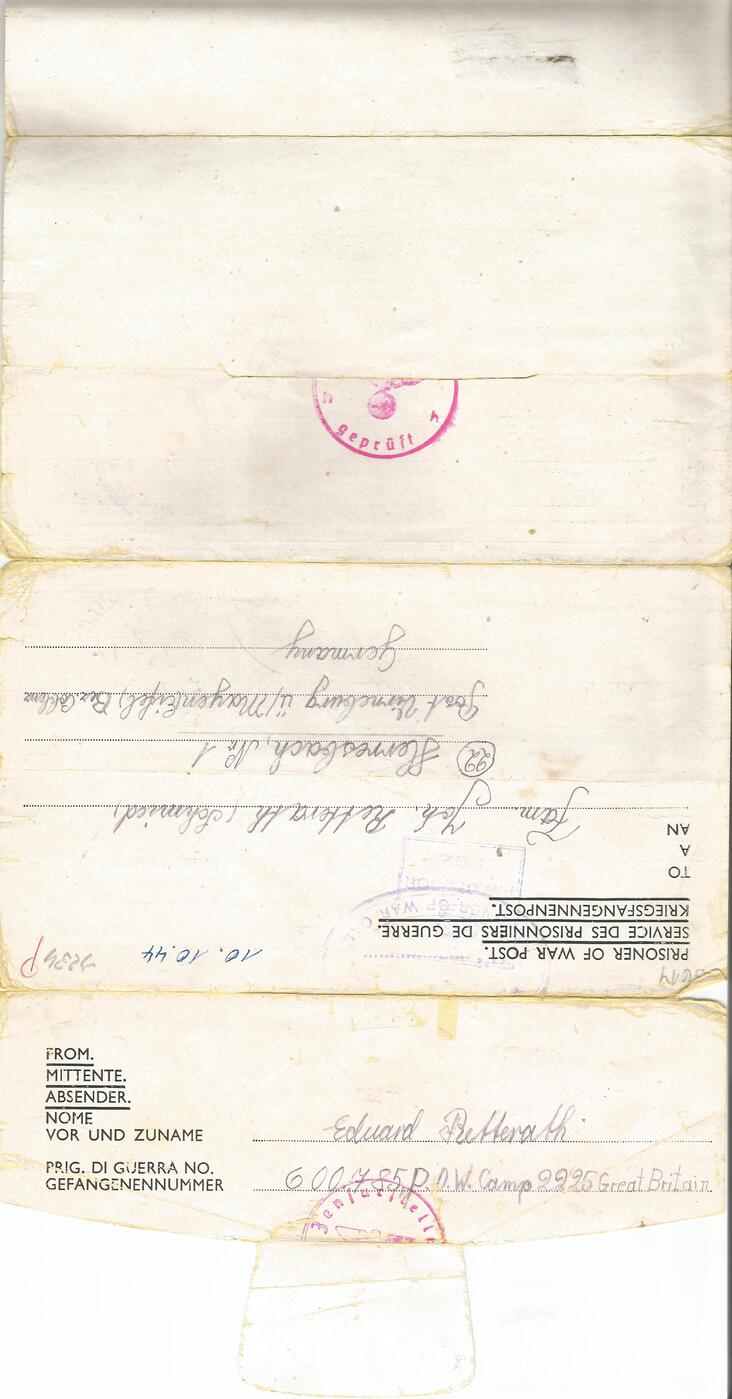 geprüft
PRISONER OF WAR POST.
SERVICE DES PRISONNIERS DE GUERRE.
KRIEGSFANGENNENPOST.
10.10.44
TO
A
AN
Fam. Joh. Retterath (Schmied)
(22) Herresbach, Nr. 1
Post Virneburg ü/Mayen (Eifel) Bez. Coblenz
Germany
FROM.
MITTENTE.
ABSENDER.
NOME
VOR UND ZUNAME Eduard Retterath
PRIG. DI GUERRA NO.
GEFANGENENNUMMER 600785 P.O.W. Camp 2225 Great Britain
Zensurstelle